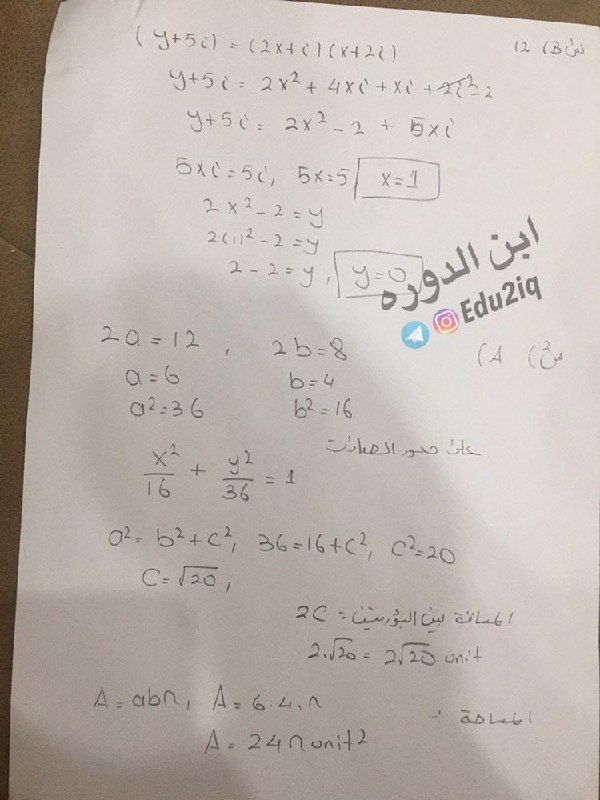 س1 (B (2
(y+5i) = (2x+i)(x+2i)
y+5i = 2x² + 4xi + xi + 2i² -2
y+5i = 2x² - 2 + 5xi
5xi = 5i, 5x=5, x=1
2x² - 2 = y
2(1)² - 2 = y
2 - 2 = y, y=0
ابن الدوره
Edu2iq
س2) A)
2a = 12 , 2b = 8
a = 6 b = 4
a² = 36 b² = 16
على محور الصادات
x²/16 + y²/36 = 1
a² = b² + c², 36 = 16 + c², c² = 20
C = √20,
المسافة بين البؤرتين = 2C
2.√20 = 2√20 unit
المساحة :
A = abπ, A = 6.4.π
A = 24π unit²